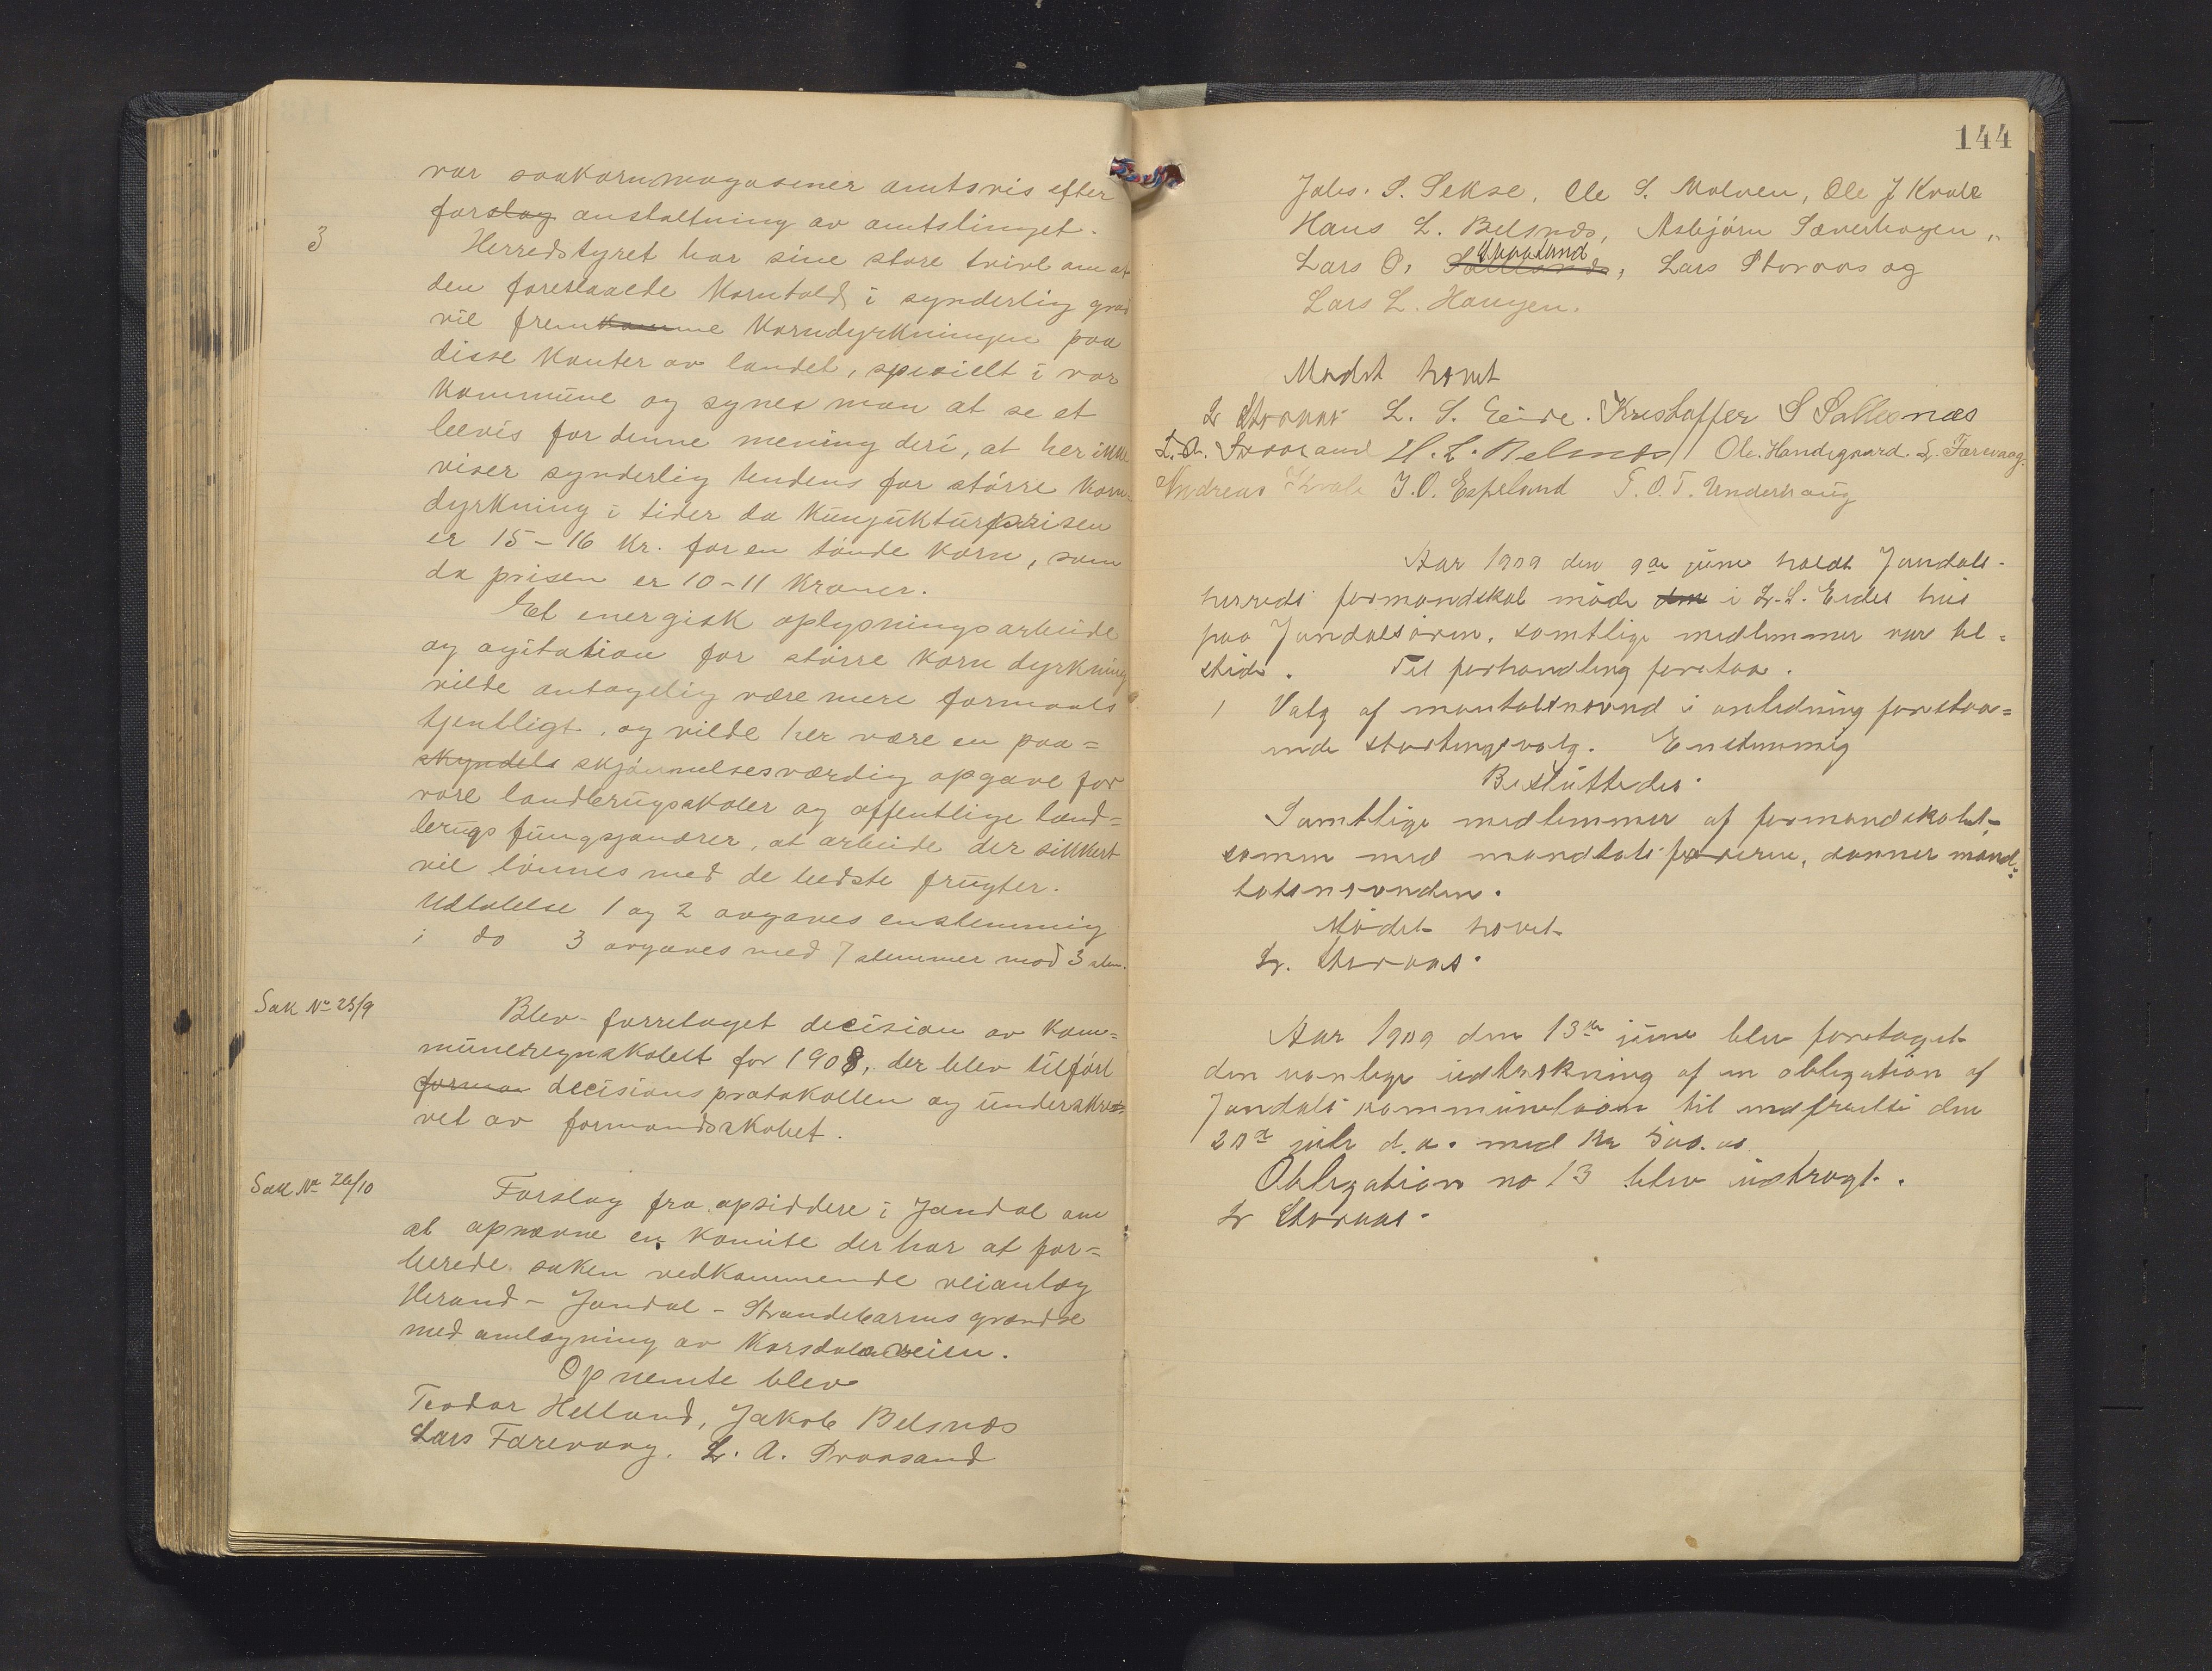 var saakornmagasener amtsvis efter
forslag anstaltning av amtstinget.
3
Herredstyret har sine store tvivl om at
den foreslaaede Korntold i synderlig grad
vil fremkomme Korndyrkningen paa
disse Kanter av landet, specielt i vor
Kommune og synes man at se et
bevis for denne mening deri, at her ikke
viser synderlig tendens for større Korn-
dyrkning i tider da Kunjukturprisen
er 15-16 Kr. for en tønde Korn, som
da prisen er 10-11 Kroner.
Et energisk oplysningsarbeide
og agitation for større Korn dyrkning
vilde antagelig være mere formaals
tjentligt, og vilde her være en paa=
skyndels skjønnelsesværdig opgave for
vore landbrugsskoler og offentlige land=
brugs fungsjonærer, at arbeide der sikkert
vil lønnes med de bedste frugter.
Udtalelse 1 og 2 avgaves enstemmig
i do 3 avgaves med 7 stemmer mod 3 stem.
Sak No 25/9
Blev forretaget decision av Kom=
muneregnskabet for 1908, der blev tilført
forman decisions protokollen og underskre=
vet av formandskabet.
Sak No 26/10
Forslag fra opsiddere i Jondal om
at opnævne en Komite der har at for=
berede saken vedkommende veianlæg
Herand - Jondal - Strandebarms grændse
med omlægning av Korsdalsveien.
Opnemte blev
Teodor Helland, Jakob Belsnæs
Lars Farevaag. L. A. Traasand
144
Johs. S. Sekse, Ole S. Molven, Ole J Kvale
Hans L. Belsnæs, Asbjørn Sæverhagen,
Lars O. Samland, Lars Storaas og
Lars L. Haugen.
Mødet hævet
Lr Storaas L. S. Eide. Kristoffer S Solesnæs
L. A. Traasand H. L. Belsnæs Ole. Handegaard L. Farevaag.
Andreas Kvale J. O. Espeland T. O. T. Underhaug
Aar 1909 den 9de juni holdt Jondals
herreds formandskab møde den i Lr. S. Eides hus
paa Jondalsøren. samtlige medlemmer var til=
stede. Til forhandling foretoes.
1 Valg af mantalsnævnd i anledning forestaa=
ende stortingsvalg. Enstemmig
Besluttedes
Samtlige medlemmer af formandskabet
samm med mandtalsførerne, danner mand=
talsnævnden.
Mødet hævet
Lr. Storaas.
Aar 1909 den 13de juni blev foretaget
den vanlige udtrækning af en obligation af
Jondals kommunelaan til indfrielse den
20de juli d. a. med Kr 500.00
Obligation no 13 blev udtrugt.
Lr Storaas.